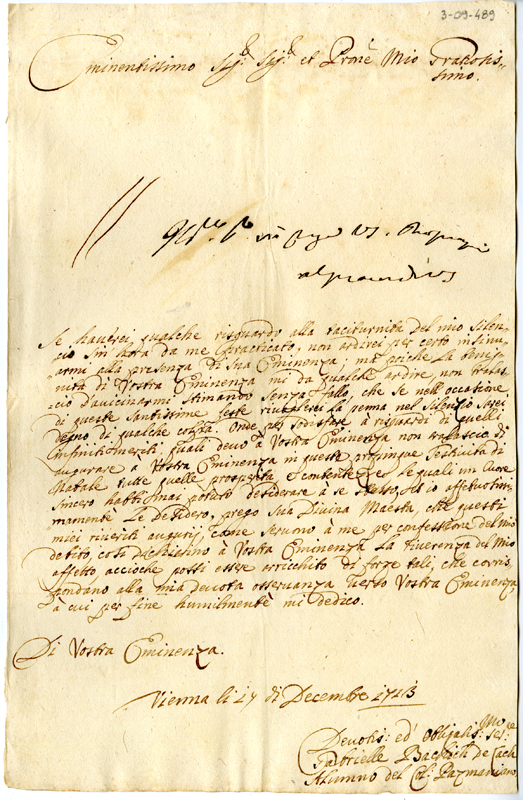 3-09-489
Eminentissimo Sig.r Sig.r et Prone Mio Gratiotis-
simo.
Se haverei qualche risguardo alla taciturnità del mio Silen-
cio sin hora da me practicato, non ardirei per certo insinu-
armi alla presenza di Sua Eminenza; mà poiche la
di Vostra Eminenza mi dà qualche ardire, non tralas-
cio d'avicinarmi stimando senza fallo, che se nell'occasione
di queste Santissime feste la penna nel Silenzio sarei
degno di qualche colpa. Onde per sodisfare à risguardi di quelli
infiniti meriti quali devo à Vostra Eminenza non tralascio di
augurare à Vostra Eminenza in queste prossime festività di
Natale tutte quelle prosperità, e contentezze le quali un Cuore
sincero habbi mai potuto desiderare à se stesso, ed io affettuosis-
simamente Le desidero, prego Sua Divina Maestà, che questi
miei riveriti augurij, come servono à me per confessione del mio
debito, così à Vostra Eminenza la riverenza del Mio
affetto, accioche possi essere arricchito di forze tali, che corris-
pondano alla mia devota osservanza verso Vostra Eminenza,
à cui per fine humilmente mi dedico.
Di Vostra Eminenza.
Vienna li 17 di Decembre 1713
Devotis: ed Obligatis:mo Ser:re
Gabrielle de
Alumno del Col: Pazmaniano